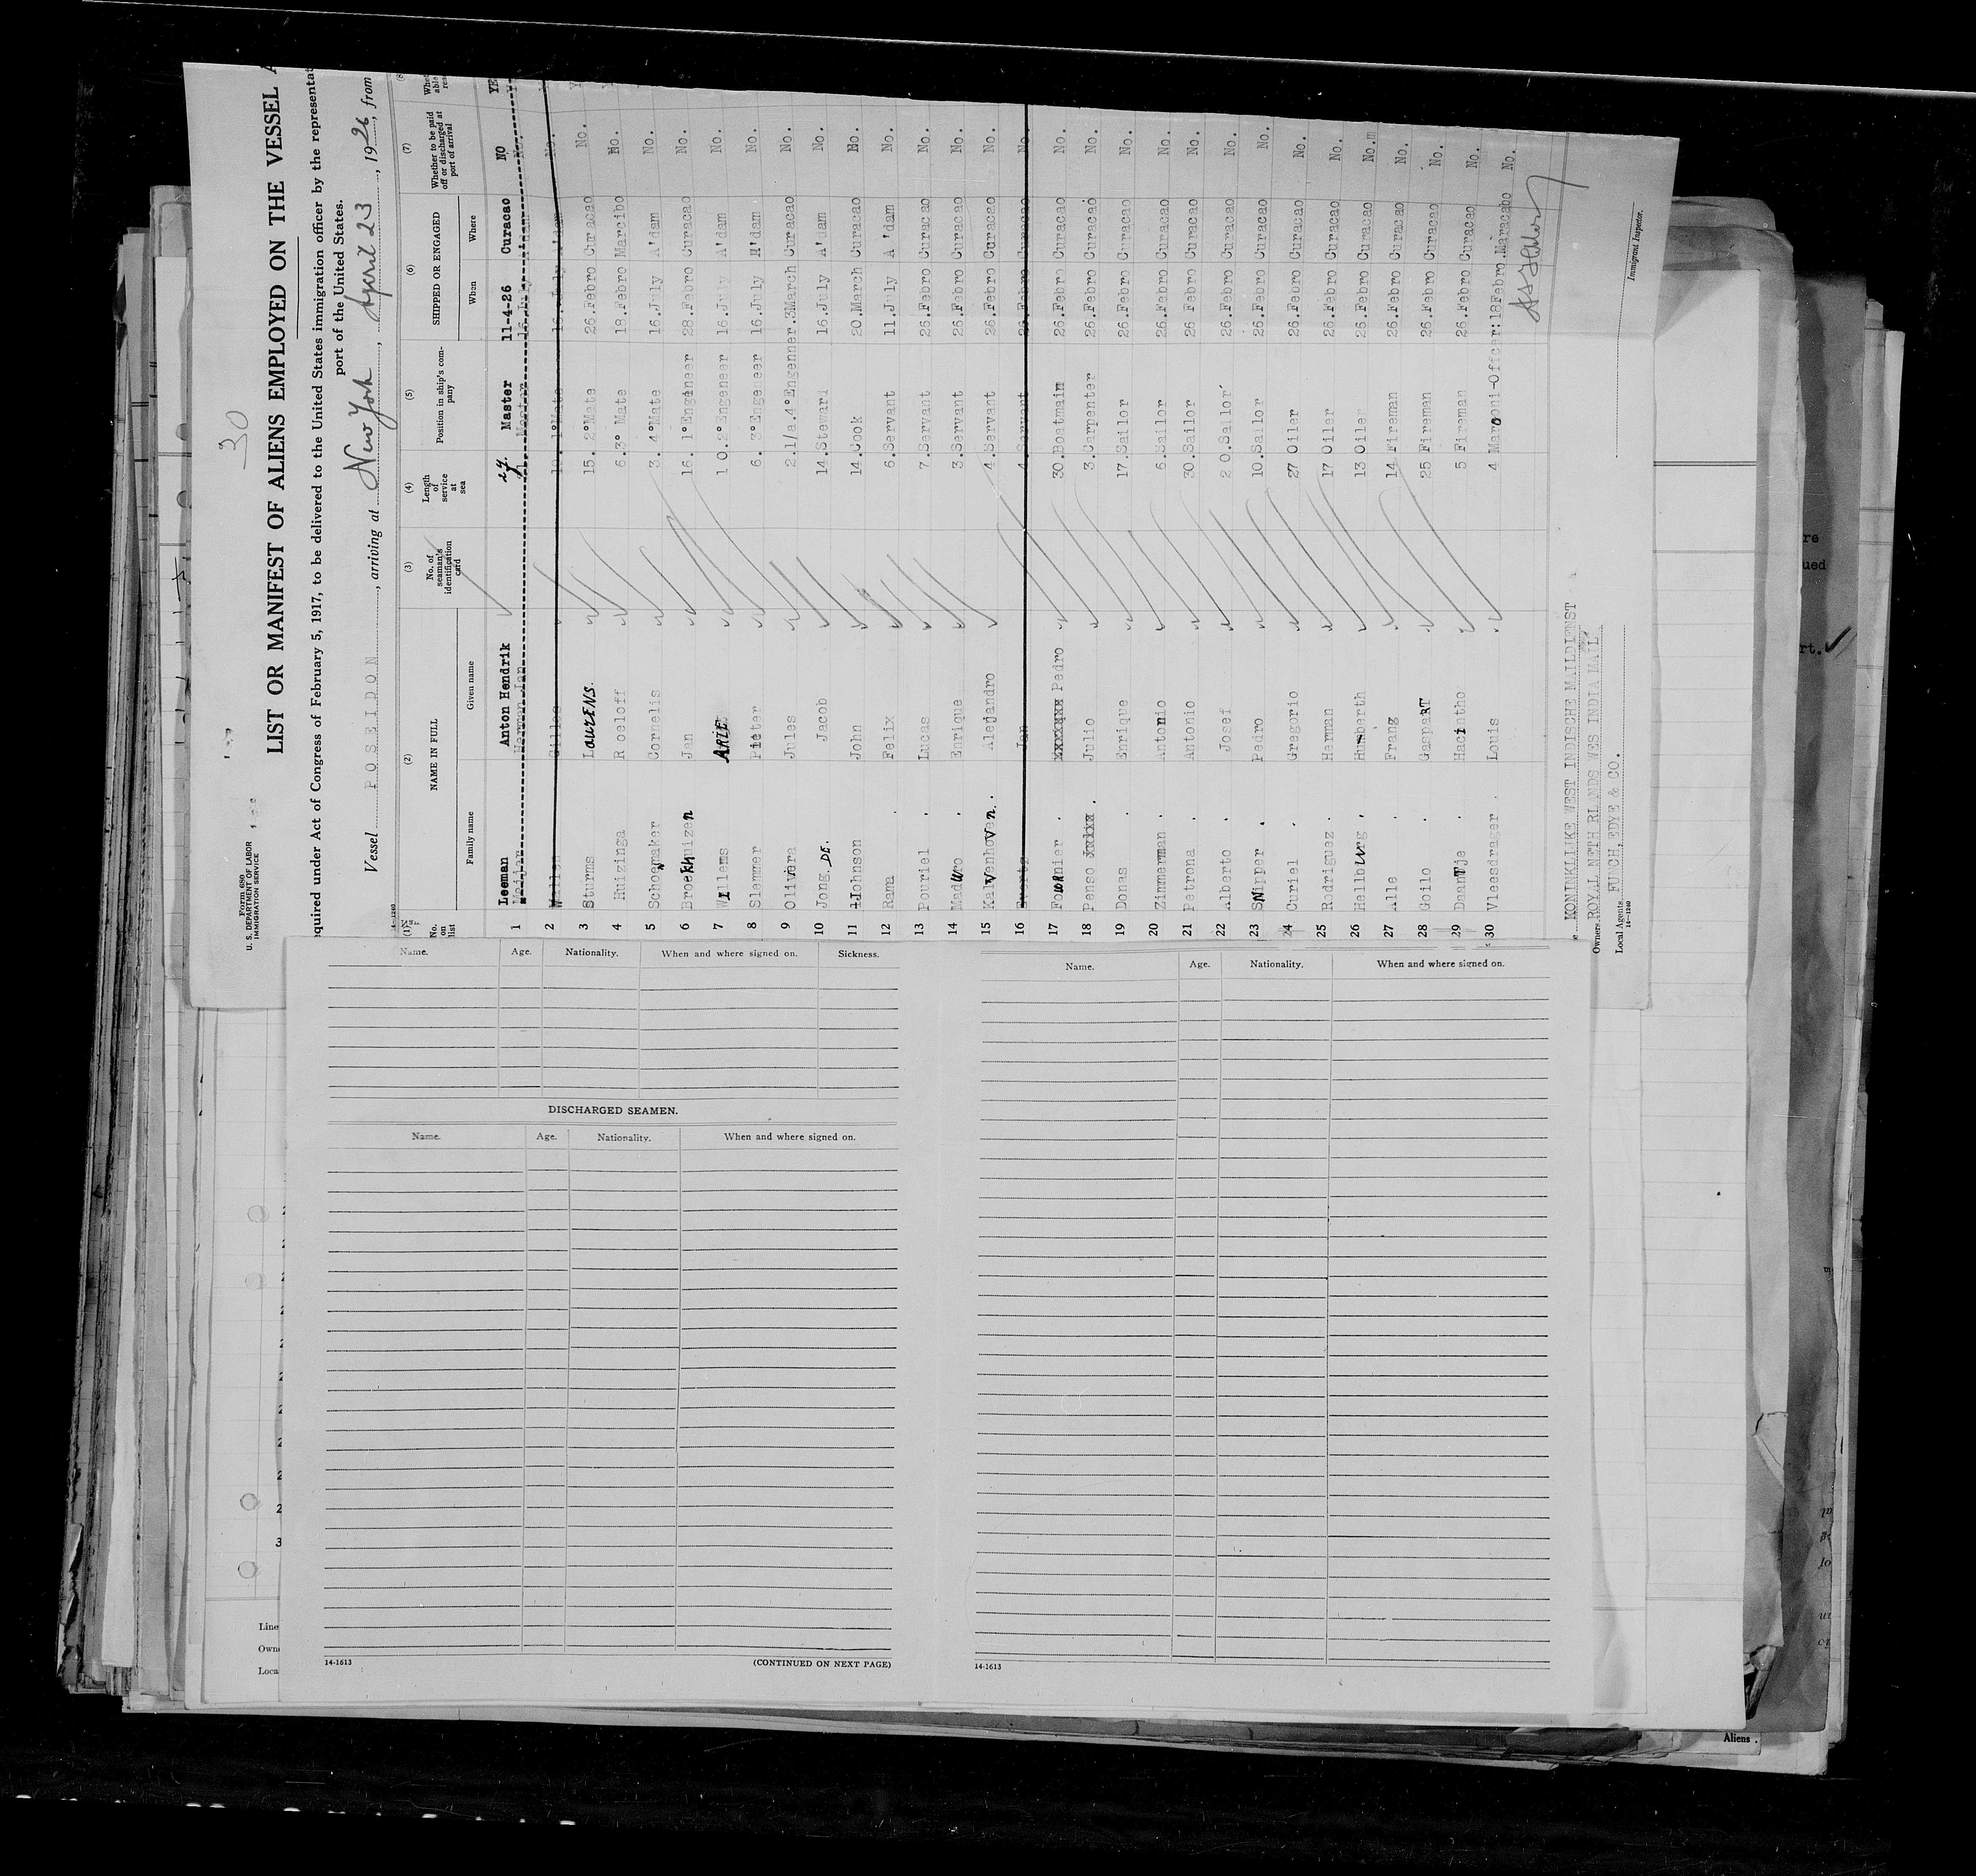 30
Form 680
U. S. DEPARTMENT OF LABOR
IMMIGRATION SERVICE
LIST OR MANIFEST OF ALIENS EMPLOYED ON THE VESSEL
equired under Act of Congress of February 5, 1917, to be delivered to the United States immigration officer by the representat
port of the United States.
Vessel POSEIDON, arriving at New York, April 23, 1926, from
(1) (2) (3) (4) (5) (6) (7) (8)
No. on list NAME IN FULL No. of seaman's identification card Length of service at sea Position in ship's company SHIPPED OR ENGAGED Whether to be paid off or discharged at port of arrival
Family name Given name When Where
Leeman Anton Hendrik 27 Master 11-4-26 Curacao NO YE
1 Herman Jan Master 16.July No.
2 Gilles 1°Mate 16.July A'dam No.
3 Sturms LauRENS. 15. 2°Mate 26.Febro Curacao No.
4 Huizinga Roeloff 6.3° Mate 18.Febro Marcibo No.
5 Schoemaker Cornelis 3. 4°Mate 16.July A'dam No.
6 Broekhuizen Jan 16. 1°Engineer 28.Febro Curacao No.
7 Willems ARIE 10.2°Engeneer 16.July A'dam No.
8 Slemmer Pieter 6. 3°Engeneer 16.July A'dam No.
9 Olivera Jules 2.1/a.4°Engenner.3March Curacao No.
10 Jong. DE. Jacob 14.Stewart 16.July A'dam No.
11 Johnson John 14.Cook 20.March Curacao No.
12 Rama . Felix 6.Servant 11.July A'dam No.
13 Pouriel . Lucas 7.Servant 26.Febro Curacao No.
14 Maduro . Enrique 3.Servant 26.Febro Curacao No.
15 Kalvenhoven. . Alejandro 4.Servant 26.Febro Curacao No.
16 Evertz Jan 4.Servant 26.Febro Curacao No.
17 Fournier . Pedro 30.Boatmain 26.Febro Curacao No.
18 Penso . Julio 3.Carpenter 26.Febro Curacao No.
19 Donas . Enrique 17.Sailor 26.Febro Curacao No.
20 Zimmerman . Antonio 6.Sailor 26.Febro Curacao No.
21 Petrona . Antonio 30.Sailor 26 Febro Curacao No.
22 Alberto . Josef 20.Sailor 26.Febro Curacao No.
23 SNipper . Pedro 10.Sailor 26.Febro Curacao No.
24 Curiel . Gregorio 27 Oiler 26.Febro Curacao No.
25 Rodriguez . Herman 17 Oiler 26.Febro Curacao No.
26 Hellburg . Humberth 13 Oiler 26.Febro Curacao No.m
27 Alle . Frang 14 Fireman 26.Febro Curacao No.
28 Goilo . GaspaRT 25 Fireman 26.Febro Curacao No.
29 DaanTje . Hacintho 5 Fireman 26.Febro Curacao No.
30 Vleesdrager . Louis 4 Marconi-Offcer:18Febro.Maracabo No.
KONINKLIJKE WEST INDISCHE MAILDIENST
Owners ROYAL NETHERLANDS WES INDIA MAIL
Local Agents FUNCH, EDYE & CO.
14-1240
Immigrant Inspector.
Name. Age. Nationality. When and where signed on. Sickness.
DISCHARGED SEAMEN.
Name. Age. Nationality. When and where signed on.
14-1613 (CONTINUED ON NEXT PAGE)
Name. Age. Nationality. When and where signed on.
14-1613
re
ued
rt.
2
3
Line
Own
Loca
Aliens